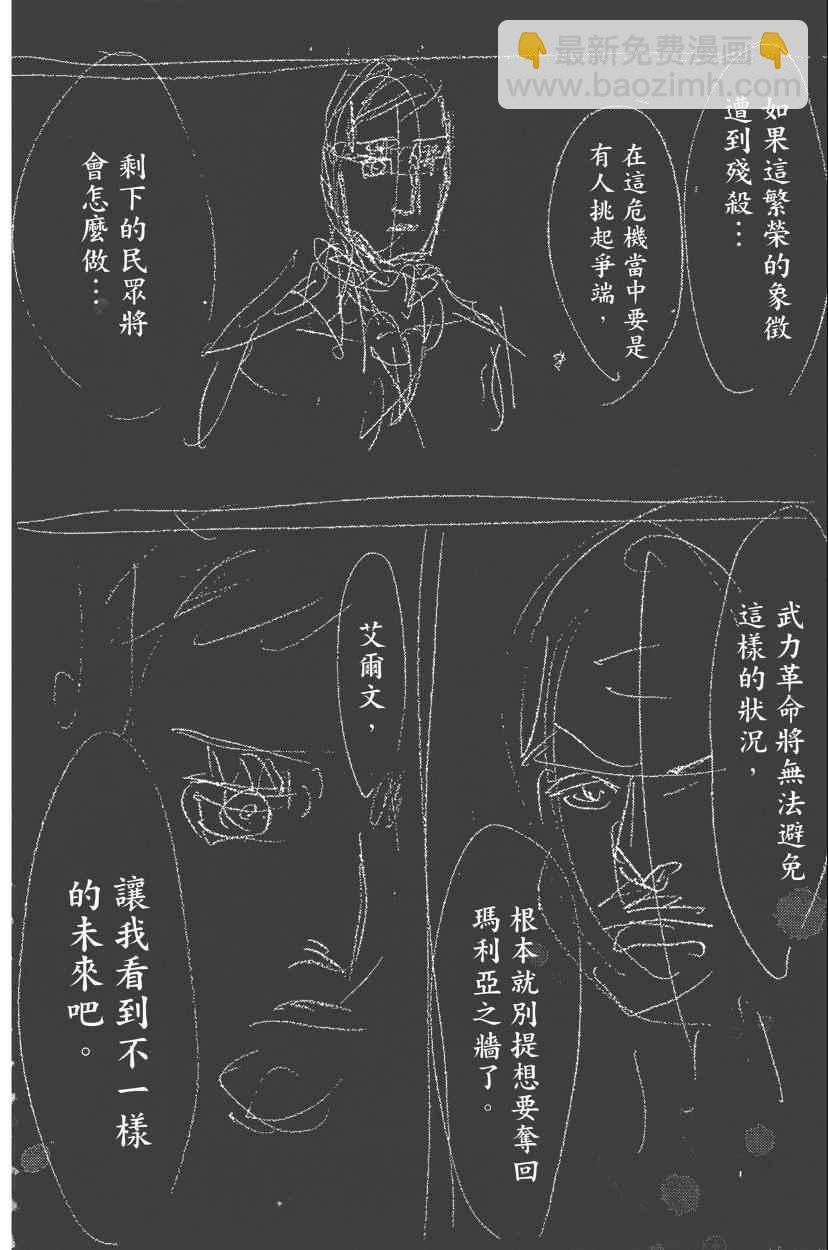 👇最新免费漫画👇
www.baozimh.com
如果這繁榮的象徵
遭到殘殺…
在這危機當中要是
有人挑起爭端，
剩下的民眾將
會怎麼做…
武力革命將無法避免
這樣的狀況，
根本就別提想要奪回
瑪利亞之牆了。
艾爾文，
讓我看到不一樣
的未來吧。